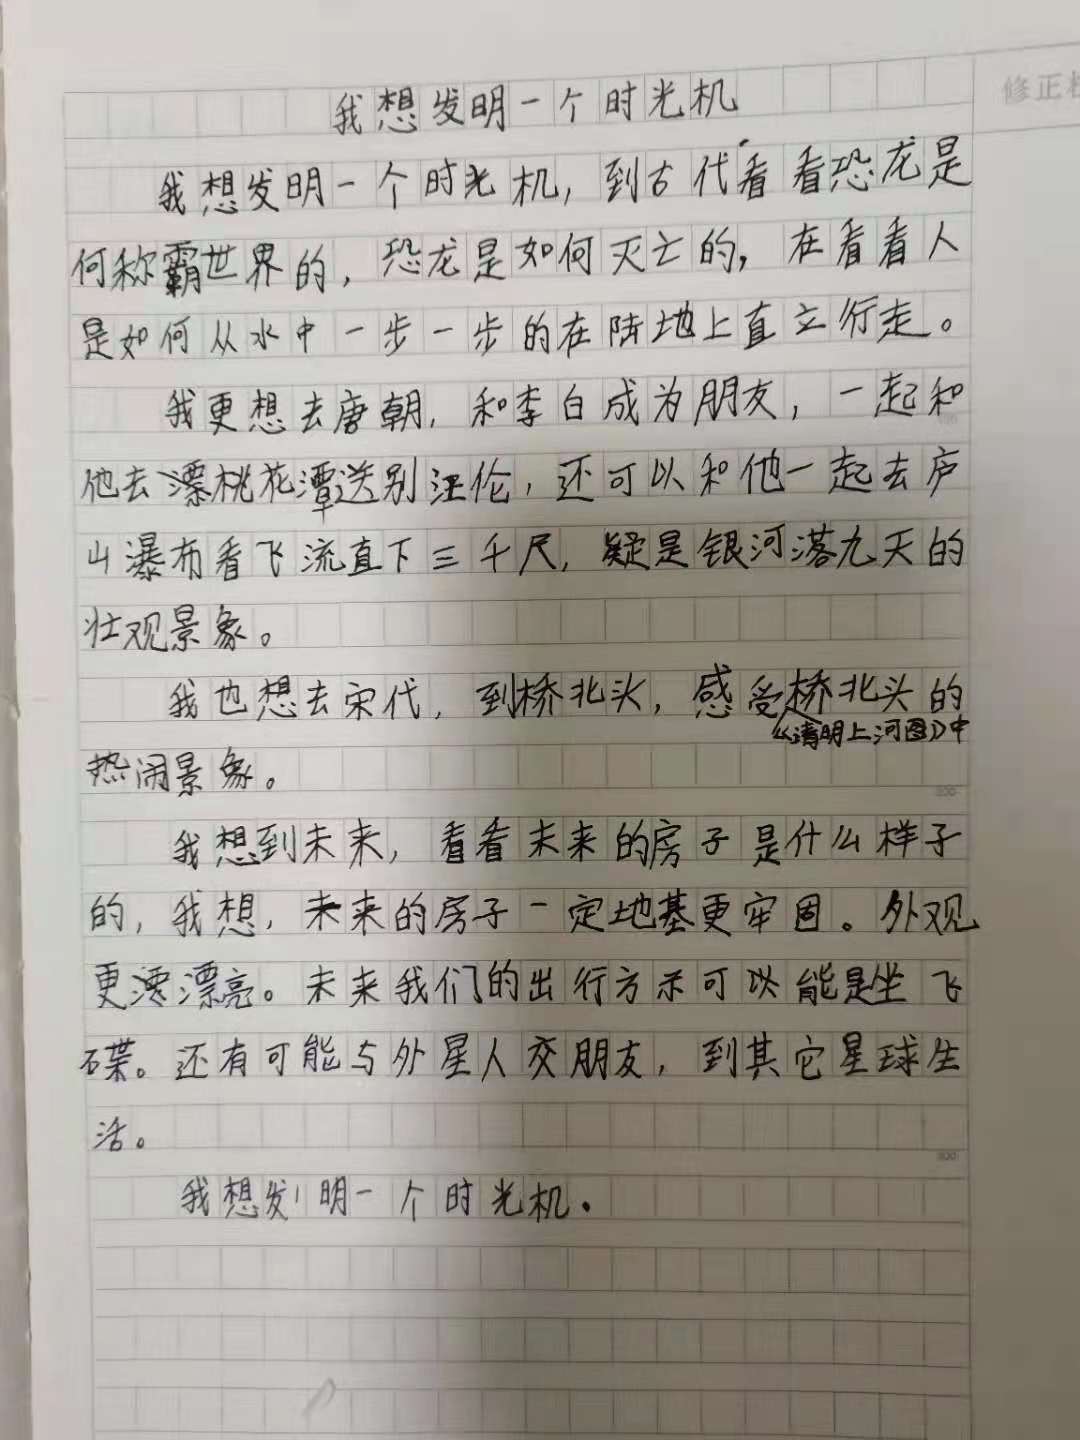 修正栏
我想发明一个时光机
我想发明一个时光机，到古代看看恐龙是
何称霸世界的，恐龙是如何灭亡的，在看看人
是如何从水中一步一步的在陆地上直立行走。
我更想去唐朝，和李白成为朋友，一起和
他去漂桃花潭送别汪伦，还可以和他一起去庐
山瀑布看飞流直下三千尺，疑是银河落九天的
壮观景象。
我也想去宋代，到桥北头，感受桥北头的
《清明上河图》中
热闹景象。
我想到未来，看看未来的房子是什么样子
的，我想，未来的房子一定地基更牢固。外观
更漂亮。未来我们的出行方示可以能是坐飞
碟。还有可能与外星人交朋友，到其它星球生
活。
我想发明一个时光机.